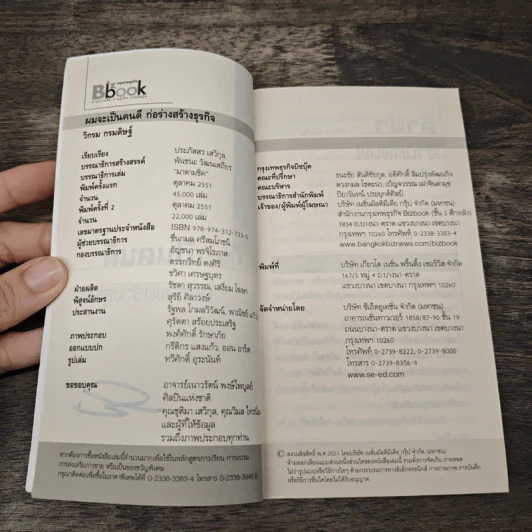 Bizbook
ผมจะเป็นคนดี ก่อร่างสร้างธุรกิจ
วิกรม กรมดิษฐ์
เรียบเรียง ประภัสสร เสวิกุล
บรรณาธิการสร้างสรรค์ พันชนะ วัฒนเสถียร
บรรณาธิการเล่ม "มาตามชิด"
พิมพ์ครั้งแรก ตุลาคม 2551
จำนวน 45,000 เล่ม
พิมพ์ครั้งที่ 2 ตุลาคม 2551
จำนวน 22,000 เล่ม
เลขมาตรฐานประจำหนังสือ ISBN 978-974-312-733-5
ผู้ช่วยบรรณาธิการ
กองบรรณาธิการ อัญชนา พรจิโรภาส
ชวิดา เศรษฐบุตร
ฝ่ายผลิต รัชดา สุวรรณ, เสงี่ยม
พิสูจน์อักษร สุรีย์ ศิลาวงษ์
ประสานงาน รัฐพล โกมลวิวัฒน์,
คุรัตดา สร้อยประเสริฐ
ภาพประกอบ พงศ์ศักดิ์ รักษาภัย
ออกแบบปก กรีติกร แสงแก้ว, ออน อาร์ต
รูปเล่ม ทวีศักดิ์ อุระนันท์
ขอขอบคุณ อาจารย์เนาวรัตน์ พงษ์ไพบูลย์
ศิลปินแห่งชาติ
คุณชุติมา เสวิกุล, คุณวิมล
และผู้ที่ให้ข้อมูล
รวมถึงภาพประกอบทุกท่าน
หากต้องการซื้อหนังสือเล่มนี้จำนวนมากเพื่อใช้ในหลักสูตรการเรียน การอบรม
การส่งเสริมการขาย หรือเป็นของขวัญพิเศษ
กรุณาติดต่อเพื่อซื้อในราคาพิเศษได้ที่ 0-2338-3383-4 โทรสาร 0-2338-3945
กรุงเทพธุรกิจบิซบุ๊ค
คณะที่ปรึกษา ธนะชัย สันติชัยกูล, อดิศักดิ์ ลิมปรุ่งพัฒนกิจ
คณะบริหาร ดวงกมล โชตะนา,
บรรณาธิการสำนักพิมพ์ ปิยนันท์ ประยุกต์ศิลป์
เจ้าของ/ผู้พิมพ์ผู้โฆษณา บริษัท เนชั่นมัลติมีเดีย กรุ๊ป จำกัด (มหาชน)
สำนักงานกรุงเทพธุรกิจ Bizbook (ชั้น 5 ตึกหลัง)
1854 ถ.บางนา-ตราด แขวงบางนา เขตบางนา
กรุงเทพฯ 10260 โทรศัพท์ 0-2338-3383-4
www.bangkokbiznews.com/bizbook
พิมพ์ที่ บริษัท เกียวโด เนชั่น พริ้นติ้ง เซอร์วิส จำกัด
167/5 หมู่ 4 ถ.บางนา-ตราด
แขวงบางนา เขตบางนา กรุงเทพฯ 10260
จัดจำหน่ายโดย บริษัท ซีเอ็ดยูเคชั่น จำกัด (มหาชน)
อาคารเนชั่นทาวเวอร์ 1858/87-90 ชั้น 19
ถนนบางนา-ตราด แขวงบางนา เขตบางนา
กรุงเทพฯ 10260
โทรศัพท์ 0-2739-8222, 0-2739-8000
โทรสาร 0-2739-8356-9
www.se-ed.com
© สงวนลิขสิทธิ์ พ.ศ.2551 โดยบริษัท เนชั่นมัลติมีเดีย กรุ๊ป จำกัด (มหาชน)
ห้ามลอกเลียนแบบส่วนหนึ่งส่วนใดของหนังสือเล่มนี้ รวมทั้งการจัดเก็บ ถ่ายทอด
ไม่ว่ารูปแบบหรือวิธีการใดๆ ด้วยกระบวนการทางอิเล็กทรอนิกส์ การถ่ายภาพ การบันทึก
หรือวิธีการอื่นใดโดยไม่ได้รับอนุญาต